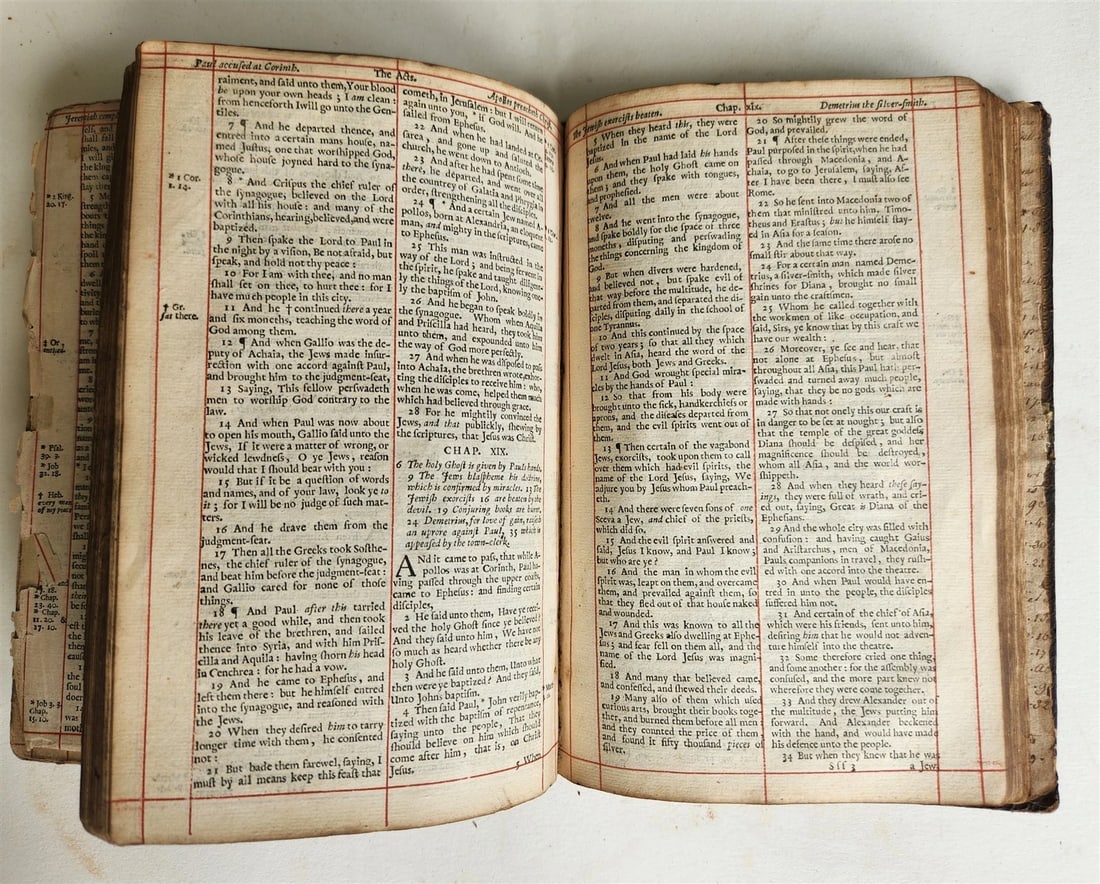 Paul accused at Corinth.
The Acts.
Apollos preacheth
raiment, and ſaid unto them, Your blood
be upon your own heads ; I am clean :
from henceforth I will go unto the Gen-
tiles.
7 ¶ And he departed thence, and
entred into a certain mans houſe, na-
med Juſtus, one that worſhipped God,
whoſe houſe joyned hard to the ſyna-
gogue.
8 * And Criſpus the chief ruler of
the ſynagogue, believed on the Lord
with all his houſe : and many of the
Corinthians, hearing, believed, and were
baptized.
9 Then ſpake the Lord to Paul in
the night by a viſion, Be not afraid, but
ſpeak, and hold not thy peace :
10 For I am with thee, and no man
ſhall ſet on thee, to hurt thee : for I
have much people in this city.
11 And he † continued there a year
and ſix moneths, teaching the word of
God among them.
12 ¶ And when Gallio was the de-
puty of Achaia, the Jews made inſur-
rection with one accord againſt Paul,
and brought him to the judgment-ſeat,
13 Saying, This fellow perſwadeth
men to worſhip God contrary to the
law.
14 And when Paul was now about
to open his mouth, Gallio ſaid unto the
Jews, If it were a matter of wrong, or
wicked lewdneſs, O ye Jews, reaſon
would that I ſhould bear with you :
15 But if it be a queſtion of words
and names, and of your law, look ye to
it ; for I will be no judge of ſuch mat-
ters.
16 And he drave them from the
judgment-ſeat.
17 Then all the Greeks took Soſthe-
nes, the chief ruler of the ſynagogue,
and beat him before the judgment-ſeat :
and Gallio cared for none of thoſe
things.
18 ¶ And Paul after this tarried
there yet a good while, and then took
his leave of the brethren, and ſailed
thence into Syria, and with him Priſ-
cilla and Aquila : having ſhorn his head
in Cenchrea : for he had a vow.
19 And he came to Epheſus, and
left them there : but he himſelf entred
into the ſynagogue, and reaſoned with
the Jews.
20 When they deſired him to tarry
longer time with them, he conſented
not :
21 But bade them farewel, ſaying, I
muſt by all means keep this feaſt that
* 1 Cor.
1. 14.
† Gr.
ſat there.
cometh, in Jeruſalem : but I will return
again unto you, * if God will. And he
ſailed from Epheſus.
22 And when he had landed at Ce-
ſarea, and gone up and ſaluted the
church, he went down to Antioch.
23 And after he had ſpent ſome time
there, he departed, and went over all
the countrey of Galatia and Phrygia in
order, ſtrengthening all the diſciples.
24 ¶ * And a certain Jew named A-
pollos, born at Alexandria, an eloquent
man, and mighty in the ſcriptures, came
to Epheſus.
25 This man was inſtructed in the
way of the Lord ; and being fervent in
the ſpirit, he ſpake and taught diligent-
ly the things of the Lord, knowing one-
ly the baptiſm of John.
26 And he began to ſpeak boldly in
the ſynagogue. Whom when Aquila
and Priſcilla had heard, they took him
unto them, and expounded unto him
the way of God more perfectly.
27 And when he was diſpoſed to paſs
into Achaia, the brethren wrote, exhor-
ting the diſciples to receive him : who,
when he was come, helped them much
which had believed through grace.
28 For he mightily convinced the
Jews, and that publickly, ſhewing by
the ſcriptures, that Jeſus was Chriſt.
CHAP. XIX.
6 The holy Ghoſt is given by Pauls hands.
9 The Jews blaſpheme his doctrine,
which is confirmed by miracles. 13 The
Jewiſh exorciſts 16 are beaten by the
devil. 19 Conjuring books are burnt.
24 Demetrius, for love of gain, raiſeth
an uprore againſt Paul, 35 which is
appeaſed by the town-clerk.
ANd it came to paſs, that while A-
pollos was at Corinth, Paul ha-
ving paſſed through the upper coaſts,
came to Epheſus : and finding certain
diſciples,
2 He ſaid unto them, Have ye recei-
ved the holy Ghoſt ſince ye believed?
And they ſaid unto him, We have not
ſo much as heard whether there be any
holy Ghoſt.
3 And he ſaid unto them, Unto what
then were ye baptized? And they ſaid,
Unto Johns baptiſm.
4 Then ſaid Paul, * John verily bap-
tized with the baptiſm of repentance,
ſaying unto the people, That they
ſhould believe on him which ſhould
come after him, that is, on Chriſt
Jeſus.
5 When
The Jewiſh exorciſts beaten.
Chap. xix.
Demetrius the ſilver-ſmith.
5 When they heard this, they were
baptized in the name of the Lord
Jeſus.
6 And when Paul had laid his hands
upon them, the holy Ghoſt came on
them ; and they ſpake with tongues,
and propheſied.
7 And all the men were about
twelve.
8 And he went into the ſynagogue,
and ſpake boldly for the ſpace of three
moneths, diſputing and perſwading
the things concerning the kingdom of
God.
9 But when divers were hardened,
and believed not, but ſpake evil of
that way before the multitude, he de-
parted from them, and ſeparated the di-
ſciples, diſputing daily in the ſchool of
one Tyrannus.
10 And this continued by the ſpace
of two years ; ſo that all they which
dwelt in Aſia, heard the word of the
Lord Jeſus, both Jews and Greeks.
11 And God wrought ſpecial mira-
cles by the hands of Paul :
12 So that from his body were
brought unto the ſick, handkerchiefs or
aprons, and the diſeaſes departed from
them, and the evil ſpirits went out of
them.
13 ¶ Then certain of the vagabond
Jews, exorciſts, took upon them to call
over them which had evil ſpirits, the
name of the Lord Jeſus, ſaying, We
adjure you by Jeſus whom Paul preach-
eth.
14 And there were ſeven ſons of one
Sceva a Jew, and chief of the prieſts,
which did ſo.
15 And the evil ſpirit anſwered and
ſaid, Jeſus I know, and Paul I know ;
but who are ye?
16 And the man in whom the evil
ſpirit was, leapt on them, and overcame
them, and prevailed againſt them, ſo
that they fled out of that houſe naked
and wounded.
17 And this was known to all the
Jews and Greeks alſo dwelling at Ephe-
ſus ; and fear fell on them all, and the
name of the Lord Jeſus was magni-
fied.
18 And many that believed came,
and confeſſed, and ſhewed their deeds.
19 Many alſo of them which uſed
curious arts, brought their books toge-
ther, and burned them before all men :
and they counted the price of them
and found it fifty thouſand pieces of
ſilver.
20 So mightily grew the word of
God, and prevailed.
21 ¶ After theſe things were ended,
Paul purpoſed in the ſpirit, when he had
paſſed through Macedonia, and A-
chaia, to go to Jeruſalem, ſaying, Af-
ter I have been there, I muſt alſo ſee
Rome.
22 So he ſent into Macedonia two of
them that miniſtred unto him, Timo-
theus and Eraſtus ; but he himſelf ſtay-
ed in Aſia for a ſeaſon.
23 And the ſame time there aroſe no
ſmall ſtir about that way.
24 For a certain man named Deme-
trius, a ſilver-ſmith, which made ſilver
ſhrines for Diana, brought no ſmall
gain unto the craftſmen.
25 Whom he called together with
the workmen of like occupation, and
ſaid, Sirs, ye know that by this craft we
have our wealth :
26 Moreover, ye ſee and hear, that
not alone at Epheſus, but almoſt
throughout all Aſia, this Paul hath per-
ſwaded and turned away much people,
ſaying, that they be no gods which are
made with hands :
27 So that not onely this our craft is
in danger to be ſet at nought ; but alſo
that the temple of the great goddeſs
Diana ſhould be deſpiſed, and her
magnificence ſhould be deſtroyed,
whom all Aſia, and the world wor-
ſhippeth.
28 And when they heard theſe ſay-
ings, they were full of wrath, and cri-
ed out, ſaying, Great is Diana of the
Epheſians.
29 And the whole city was filled with
confuſion : and having caught Gaius
and Ariſtarchus, men of Macedonia,
Pauls companions in travel, they ruſh-
ed with one accord into the theatre.
30 And when Paul would have en-
tred in unto the people, the diſciples
ſuffered him not.
31 And certain of the chief of Aſia,
which were his friends, ſent unto him,
deſiring him that he would not adven-
ture himſelf into the theatre.
32 Some therefore cried one thing,
and ſome another : for the aſſembly was
confuſed, and the more part knew not
wherefore they were come together.
33 And they drew Alexander out of
the multitude, the Jews putting him
forward. And Alexander beckened
with the hand, and would have made
his defence unto the people.
34 But when they knew that he was
Sſſ 3
a Jew
* 1 King.
20. 17.
‡ Or,
* Pſal.
39. 3.
* Job
31. 18.
† Heb.
* Chap.
23. 40.
* Chap.
11. 20. &
17. 10.
* Job 3. 3.
Chap.
15. 10.